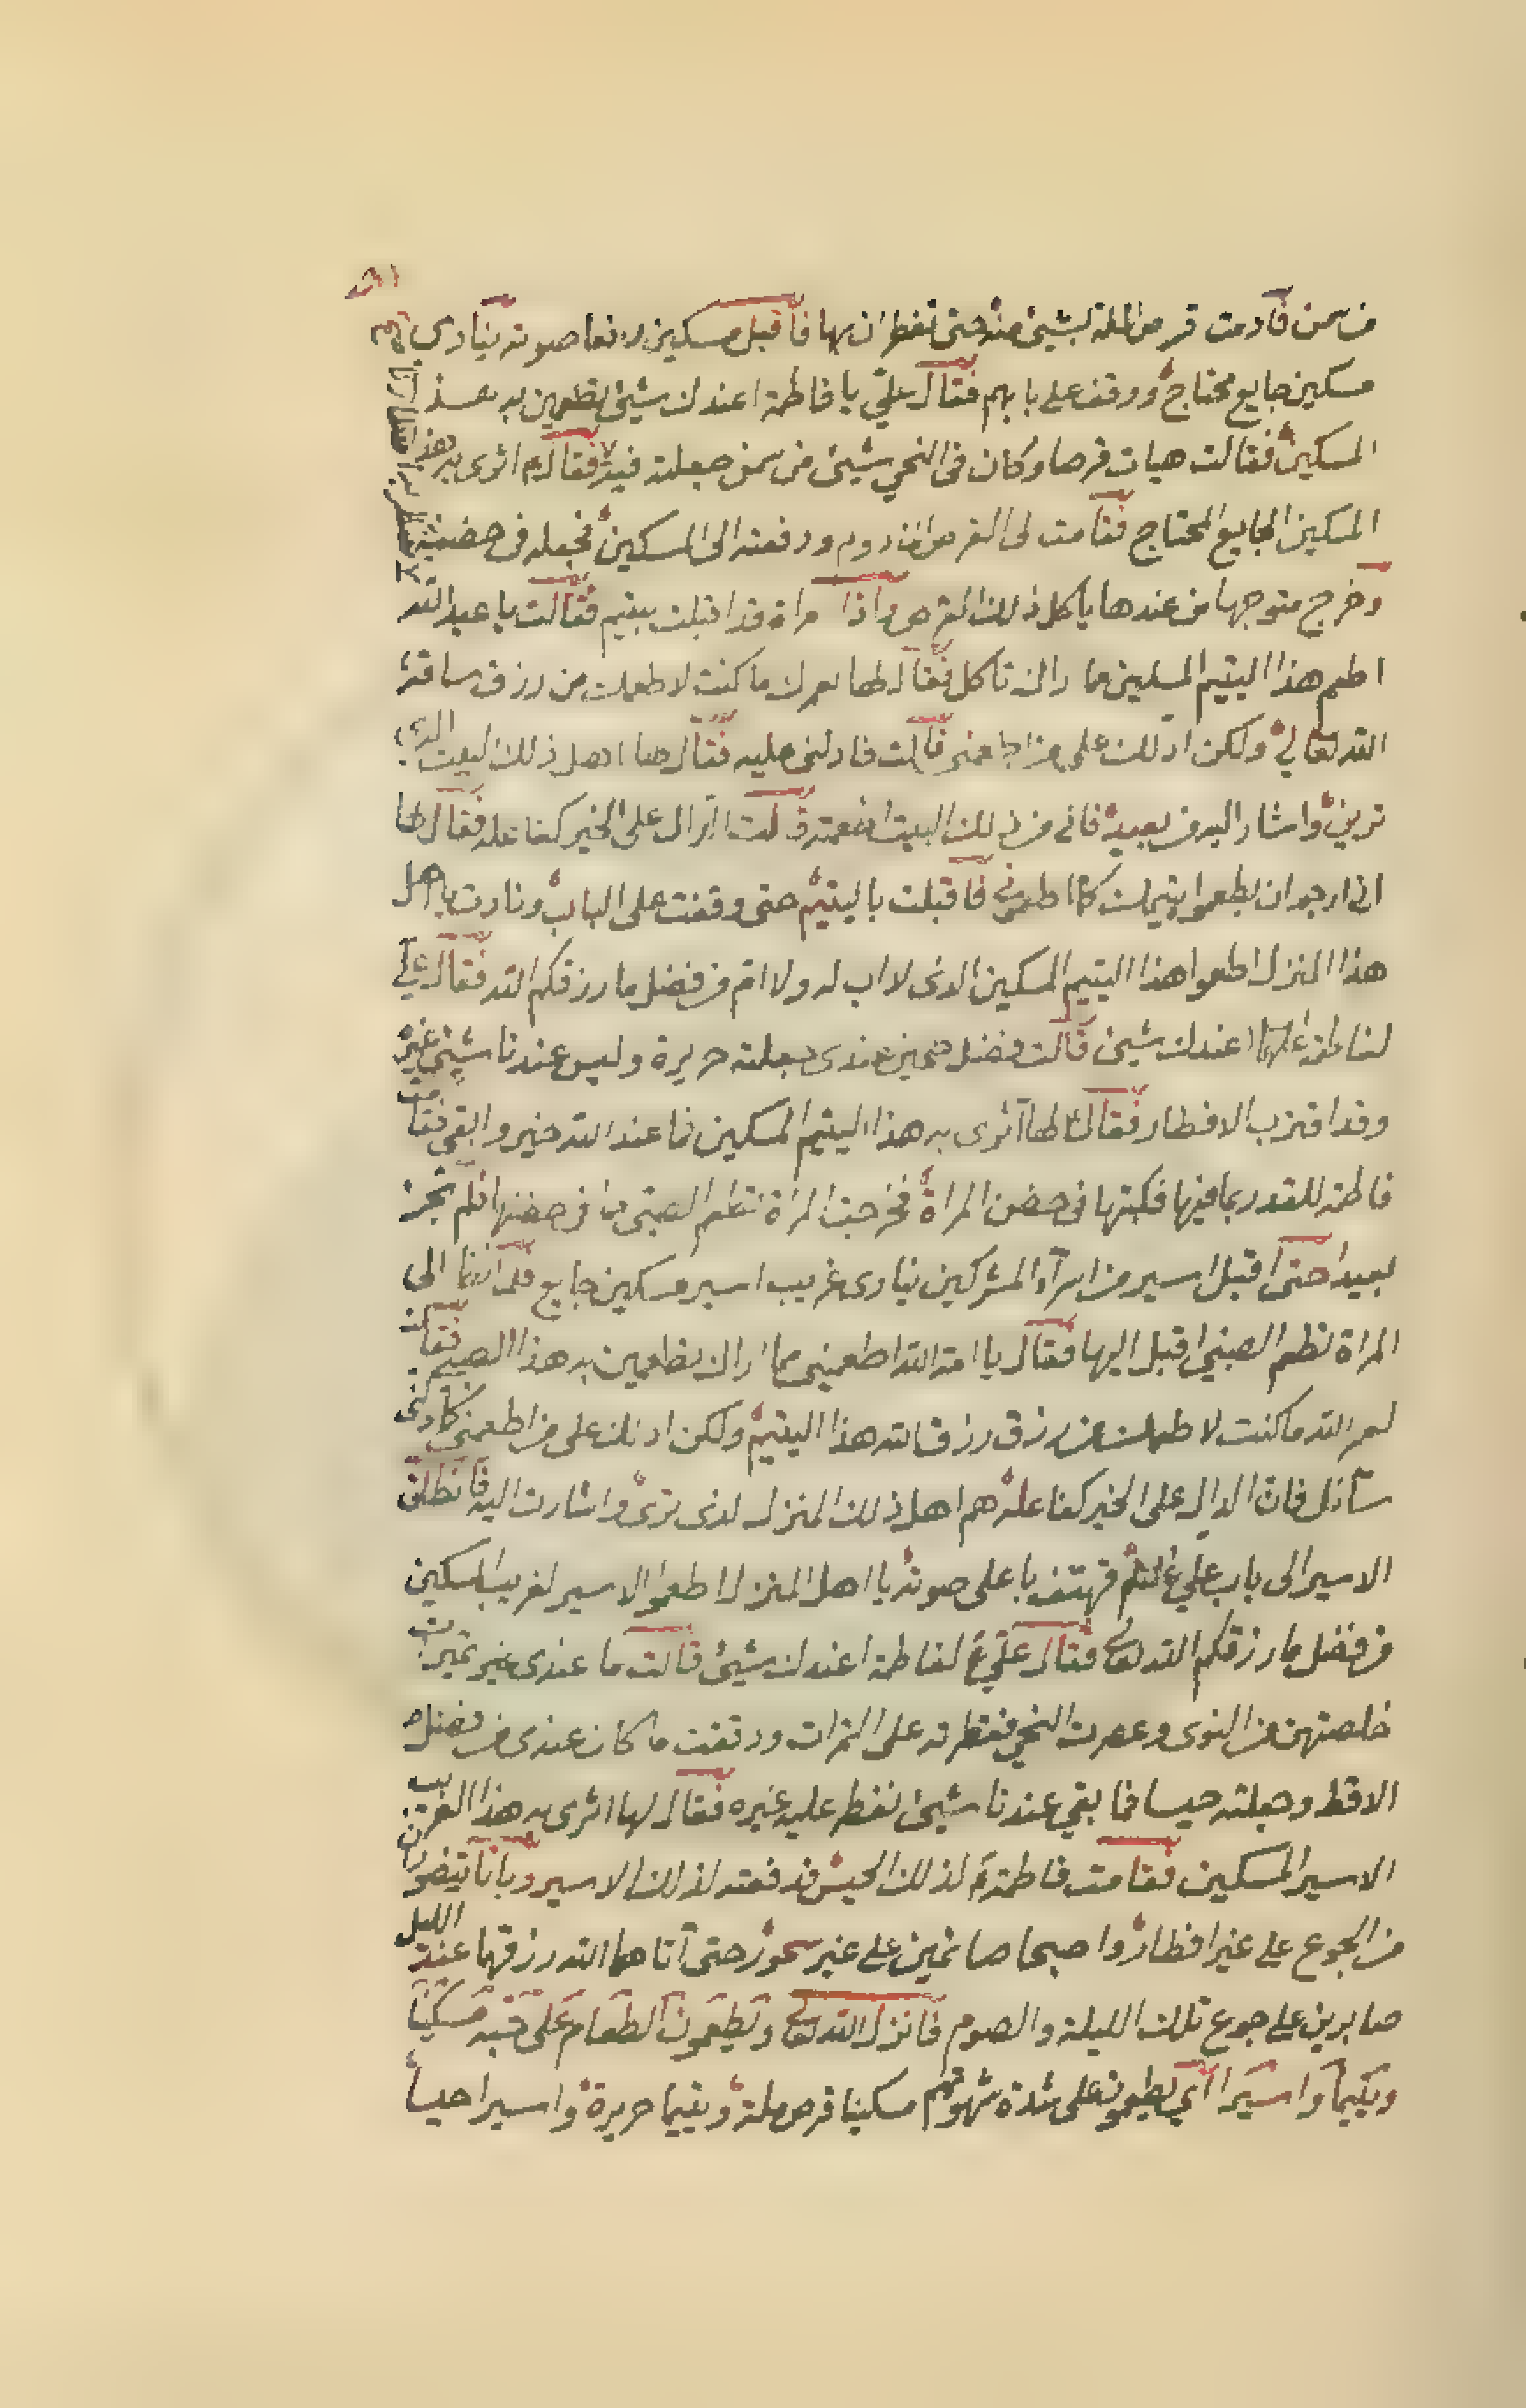 من سمن فادمت قرص الملة بشيئ منه حتى تفطران بها فاقبل مسكين رافعا صوته ينادى
مسكين جايع محتاج ووقف على بابهم فقال علي يا فاطمة اعندك شيئ تطعمين به هذ
المسكين فقالت هيات قرصا وكان فى النحي شيئ من سمن جعلته فيه فقال اثرى به هذ
المسكين الجايع المحتاج فقامت الى القرص المادوم ودفعته الى المسكين فجعله فى حضنه
وخرج متوجها من عندها ياكل ذلك القرص واذا مراة قد اقبلت بيتيم فقالت يا عبد الله
اطعم هذا اليتيم المسكين مما راك تاكل فقال لها لعمرك ما كنت لاطعمك من رزق ساقه
الله تعالى ولكن ادلك على من اطعمنى قالت فادلنى عليه فقال لها اهل ذلك البيت الذى
ترين واشار اليه من بعيد فان فى ذلك البيت اطعمته قالت الدال على الخير كفاعله فقال لها
انى ارجو ان يطعموا يتيمك كما اطعمونى فاقبلت باليتيم حتى وقفت على الباب ونادت يا اهل
هذا المنزل اطعموا هذا اليتيم المسكين الذى لا اب له ولا ام من فضل ما رزقكم الله فقال علي
لفاطمة اعندك شيئ قالت فضل طحين عندى جعلته حريرة وليس عندنا شيئ غيره
وقد اقترب الافطار فقال لها آثرى به هذا اليتيم المسكين فما عند الله خير وابقى فقامت
فاطمة للقدر بما فيها فكبتها فى حضن المراة فخرجت المراة تطعم الصبي مما فى حضنها فلم تجز
بعيدا حتى اقبل اسير من اسرآء المشركين ينادى غريب اسير مسكين جايع فلما الى
المراة تطعم الصبي اقبل اليها فقال يا امة الله اطعمينى مما اراك تطعمين به هذا الصبي فقالت
لعمر الله ما كنت لاطعمك من رزق رزق الله هذا اليتيم ولكن ادلك على من اطعمنى كما دلنى
سآئل فان الدال على الخير كفاعله هم اهل ذلك المنزل لذى ترى واشارت اليه فانطلق
الاسير الى باب علي فهتف باعلى صوته يا اهل المنزل اطعموا الاسير لغريب المسكين
من فضل ما رزقكم الله تعالى فقال علي ع لفاطمة اعندك شيئ قالت ما عندى غير تميرات
خلصتهن من النوى وعصرت النحي فقطرته على التمرات ودققت ما كان عندى من فضل
الاقط وجعلته حيسا فما بقي عندنا شيئ نفطر عليه غيره فقال لها اثرى به هذا الغريب
الاسير المسكين فقامت فاطمة لذلك الحيس فدفعته لذلك الاسير وباتا يتضوران
من الجوع على غير افطار واصبحا صائمين على غير سحور حتى آتاهما الله رزقهما عند الليل
صابرين على جوع تلك الليلة والصوم فانزل الله تعالى ويطعمون الطعام على حبه مسكينا
ويتيما واسيرا اي يطعمونه على شدة شهوتهم مسكينا قرص ملة ويتيما حريرة واسيرا حيسا